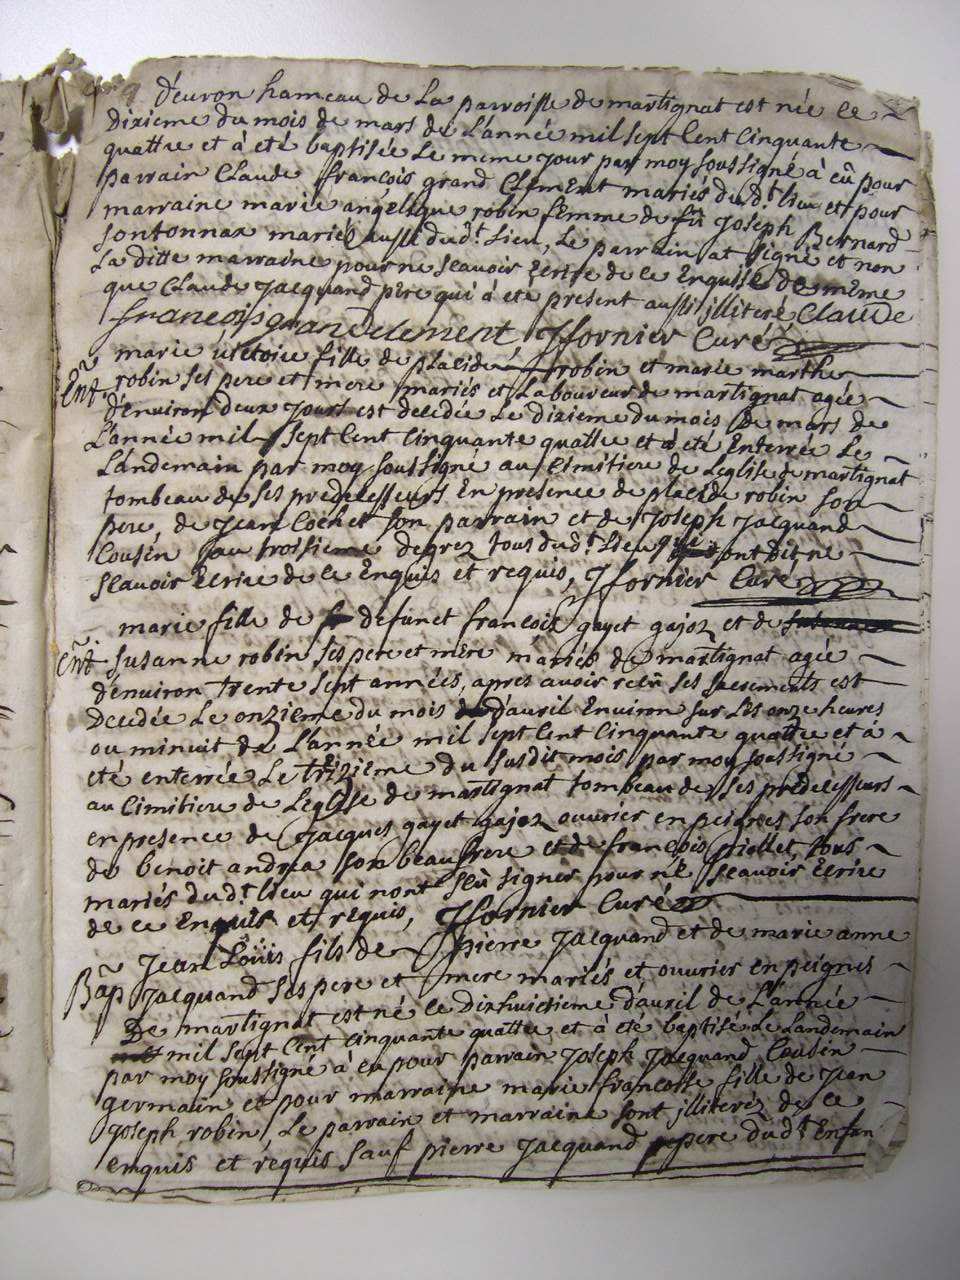 d'evron hameau de La parroisse de martignat est née ce
Dixieme du mois de mars de L'année mil sept Cent Cinquante
quattre et à eté baptisée Le meme jour par moy soussigné à eû pour
parrain Claude françois grand Clement mariés dud.t lieu et pour
marraine marie angelique robin femme de fû Joseph Bernard
sontonnax mariés aussi dud.t Lieu, Le parrain at signé et non
La ditte marraine pour ne scavoir Ecrire de ce Enquise de meme
que Claude Jacquand pere qui à eté present aussi illiteré Claude
françois grandclement Jfornier Curé
marie victoire fille de placide robin et marie marthe
Ent robin ses pere et mere mariés et Laboureur de martignat agée
d'environ deux jours est decedée Le dixieme du mois de mars de
L'année mil sept Cent Cinquante quattre et à eté Enterrée Le
Landemain par moy soussigné au Cimitiere de Leglise de martignat
tombeau de ses predecesseurs En présence de placide robin son
pere, de Jean Cochet son parrain et de Joseph Jacquand
Cousin au troisieme degrez tous dud.t Lieu qui ont dit ne
scavoir Ecrire de ce Enquis et requis, Jfornier Curé
marie fille de defunct françois gayet gajoz et de
Ent susanne robin ses pere et mere mariés de martignat agée
d'environ trente sept années, apres avoir receu ses sacrements est
Decedée Le onzieme du mois d'avril Environ sur Les onze heures
ou minuit de L'année mil sept Cent Cinquante quattre et à
eté enterrée Le treizieme du susdit mois par moy soussigné
au Cimitiere de Leglise de martignat tombeau de ses predecesseurs
en presence de Jacques gayet gajoz ouvrier en peignes son frere
de benoit andrea son beaufrere et de françois piollet tous
mariés dud.t lieu qui nont sceû signer pour ne scavoir Ecrire
de ce Enquis et requis, Jfornier Curé
Jean Loüis fils de pierre Jacquand et de marie anne
Bap Jacquand ses pere et mere mariés et ouvrier en peignes
De martignat est né ce Dixhuictieme d'avril de L'année
mil sept Cent Cinquante quattre et à eté baptisé Le Landemain
par moy soussigné à eu pour parrain Joseph Jacquand Cousin
germain et pour marraine marie françoise fille de Jean
Joseph robin, Le parrain et marraine sont jlliterez de ce
enquis et requis sauf pierre Jacquand pere dud.t Enfan